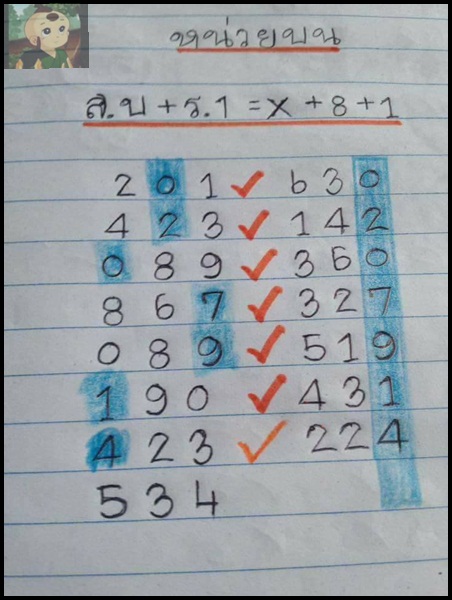 หน่วยบน
ส.บ + ร.1 = x + 8 + 1
2 0 1 ✓ 6 3 0
4 2 3 ✓ 1 4 2
0 8 9 ✓ 3 6 0
8 6 7 ✓ 3 2 7
0 8 9 ✓ 5 1 9
1 9 0 ✓ 4 3 1
4 2 3 ✓ 2 2 4
5 3 4